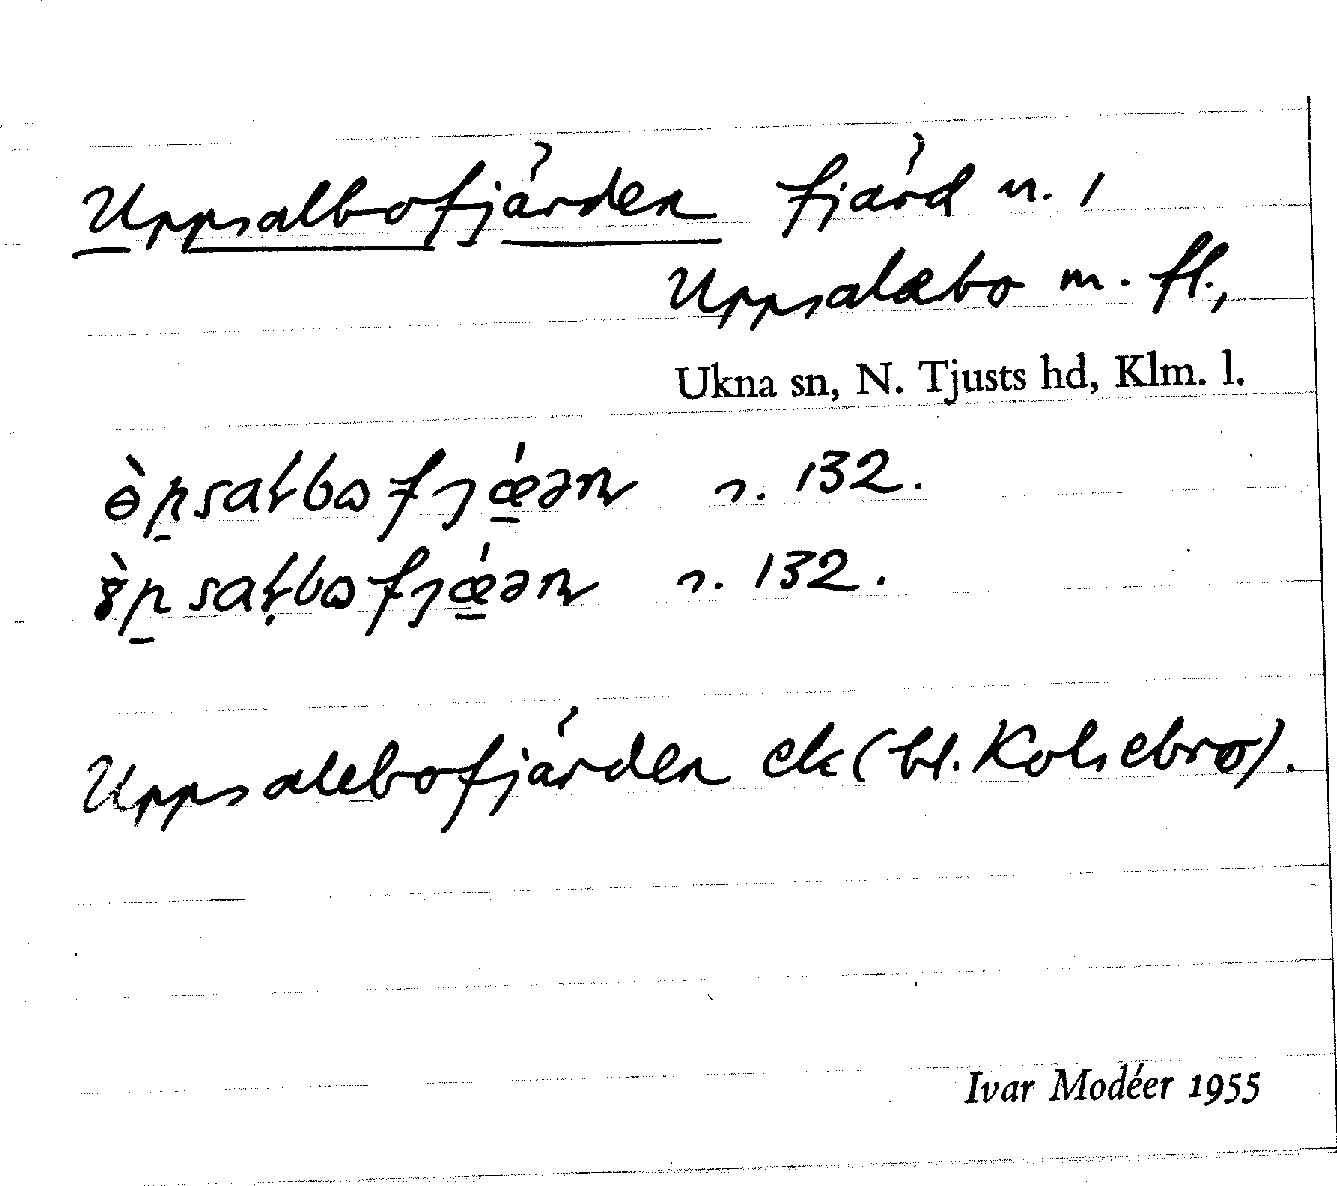 Uppsalbofjärden fjärd u. 1
Uppsalebo m. fl.,
Ukna sn, N. Tjusts hd, Klm. l.
s. 132.
s. 132.
Uppsalebofjärden ek (bl. Kolsebro).
Ivar Modéer 1955